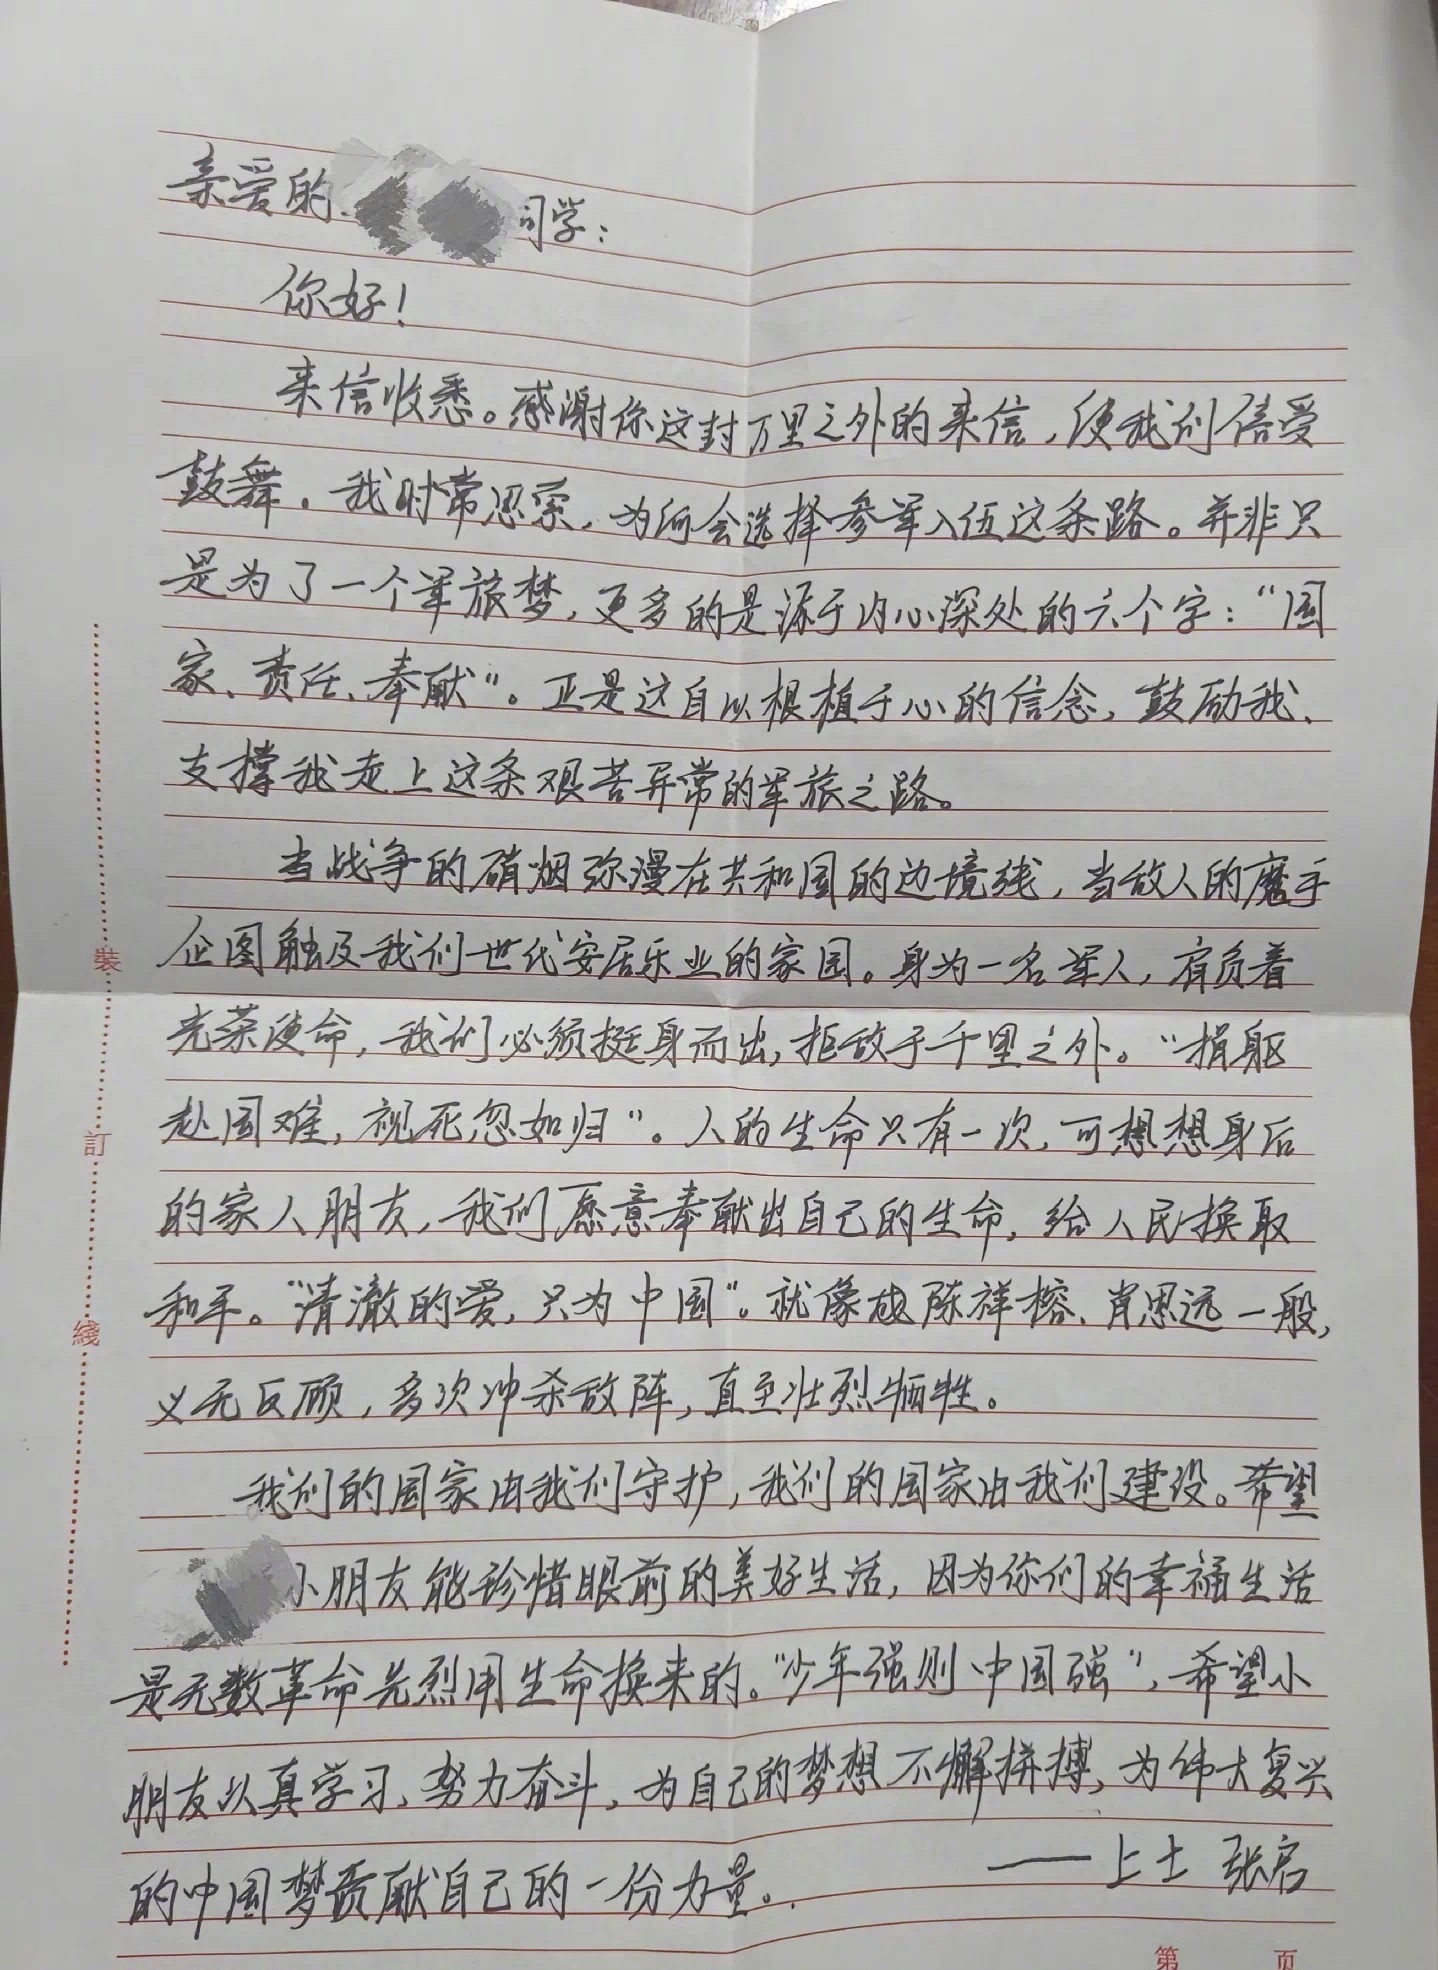 亲爱的 同学：
你好！
来信收悉。感谢你这封万里之外的来信，使我们倍受
鼓舞。我时常思索，为何会选择参军入伍这条路。并非只
是为了一个军旅梦，更多的是源于内心深处的六个字：“国
家、责任、奉献”。正是这自以根植于心的信念，鼓励我、
支撑我走上这条艰苦异常的军旅之路。
当战争的硝烟弥漫在共和国的边境线，当敌人的魔手
企图触及我们世代安居乐业的家园。身为一名军人，肩负着
光荣使命，我们必须挺身而出，拒敌于千里之外。“捐躯
赴国难，视死忽如归”。人的生命只有一次，可想想身后
的家人朋友，我们愿意奉献出自己的生命，给人民换取
和平。“清澈的爱，只为中国”。就像 陈祥榕、肖思远一般，
义无反顾，多次冲杀敌阵，直至壮烈牺牲。
我们的国家由我们守护，我们的国家由我们建设。希望
小朋友能珍惜眼前的美好生活，因为你们的幸福生活
是无数革命先烈用生命换来的。“少年强则中国强”，希望小
朋友以真学习、努力奋斗，为自己的梦想不懈拼搏，为伟大复兴
的中国梦贡献自己的一份力量。
——上士 张启
裝
訂
綫
第 页